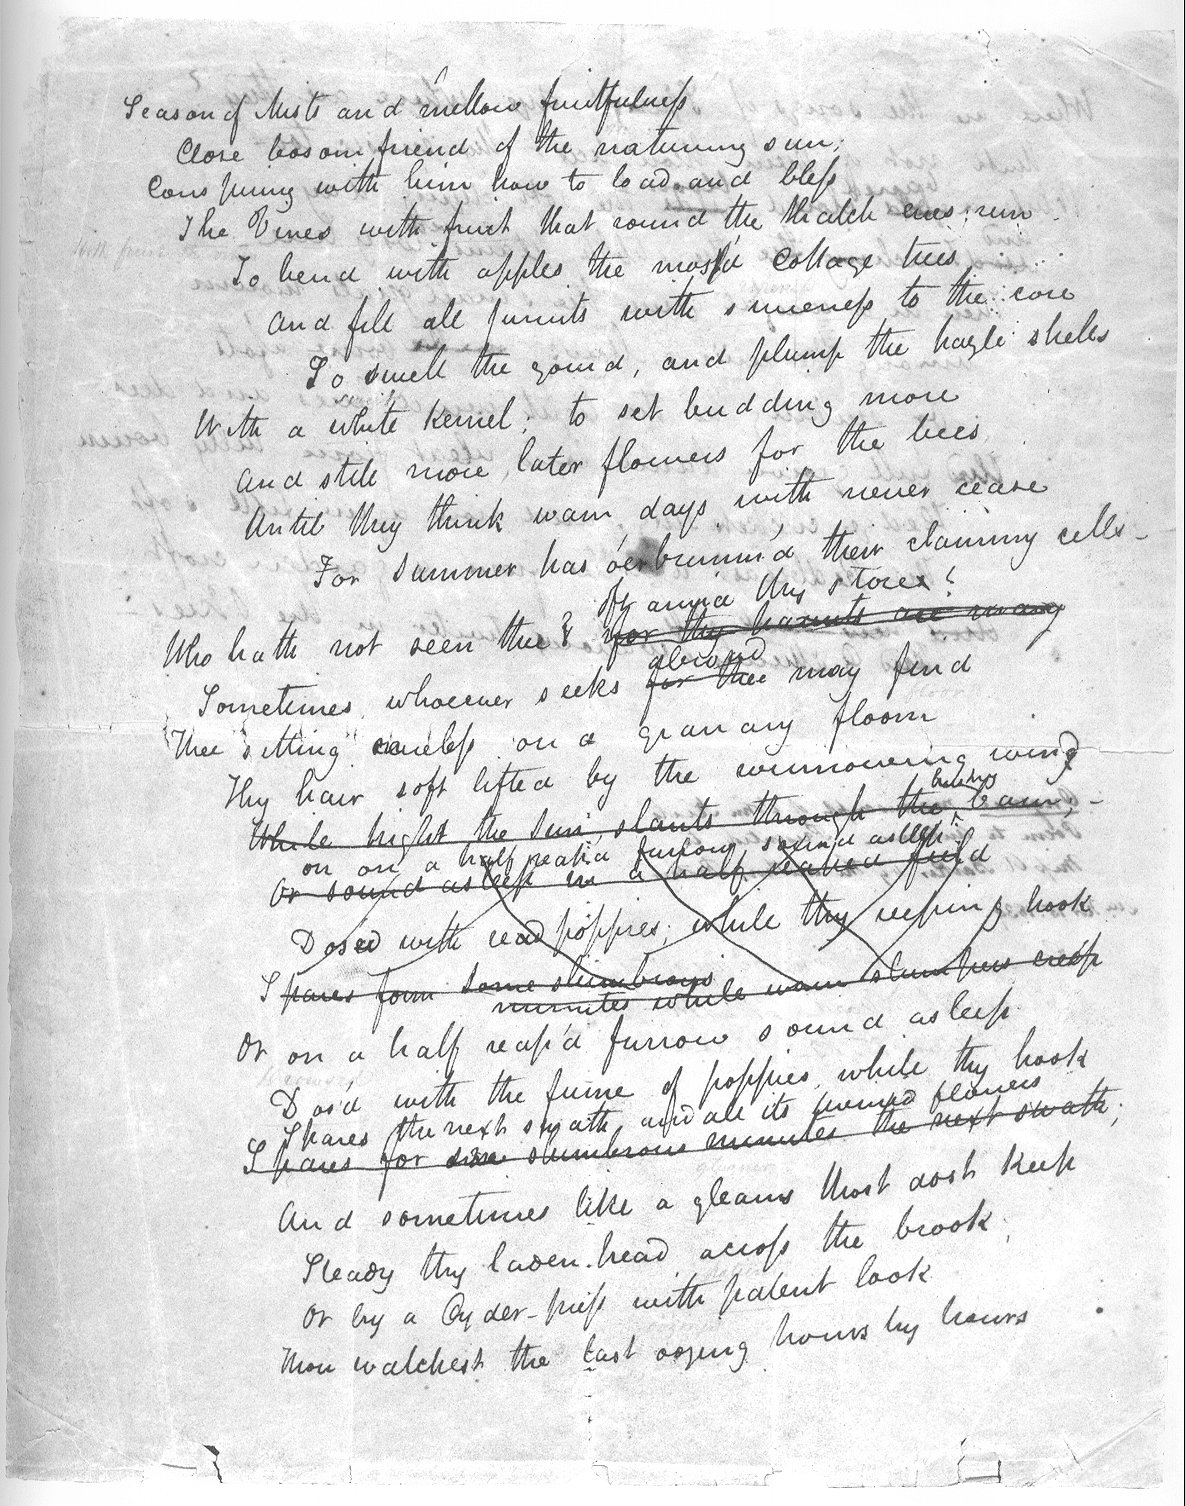 Season of Mists and mellow fruitfulness
Close bosom friend of the naturring sun;
Conspiring with him how to load and bless
The Vines with fruit that round the thatch eves run
To bend with apples the moss'd Cottage trees
And fill all furuits with sweeness to the core
To swell the gourd, and plump the hazle shells
With a white kernel; to set budding more
And still more later flowers for the bees
Until they think wam days with never cease
For Summer has o'erbrimm'd their clammy cells—
oft amid thy stores?
Who hath not seen thee? for thy haunts are many
abroad
Sometimes whoever seeks for thee may find
Thee sitting careless on a granary floorr
Thy hair soft lifted by the winnowing wind
While bright the Sun slants through the husky barn;—
on on a half reap'd furrow sound asleep
Or sound asleep in a half reaped field
Dosed with read poppies; while thy reeping hook
Spares form some slumbrous
minutes while wam slumpers creep
Or on a half reap'd furrow sound asleep
Dos'd with the fume of poppies, while thy hook
Spares the next swath and all its twined flowers
Spares for some slumbrous minutes the next swath;
And sometimes like a gleans thost dost keep
Steady thy laden head across the brook;
Or by a Cyder-press with patent look
Thou watchest the last oozing hours by hours